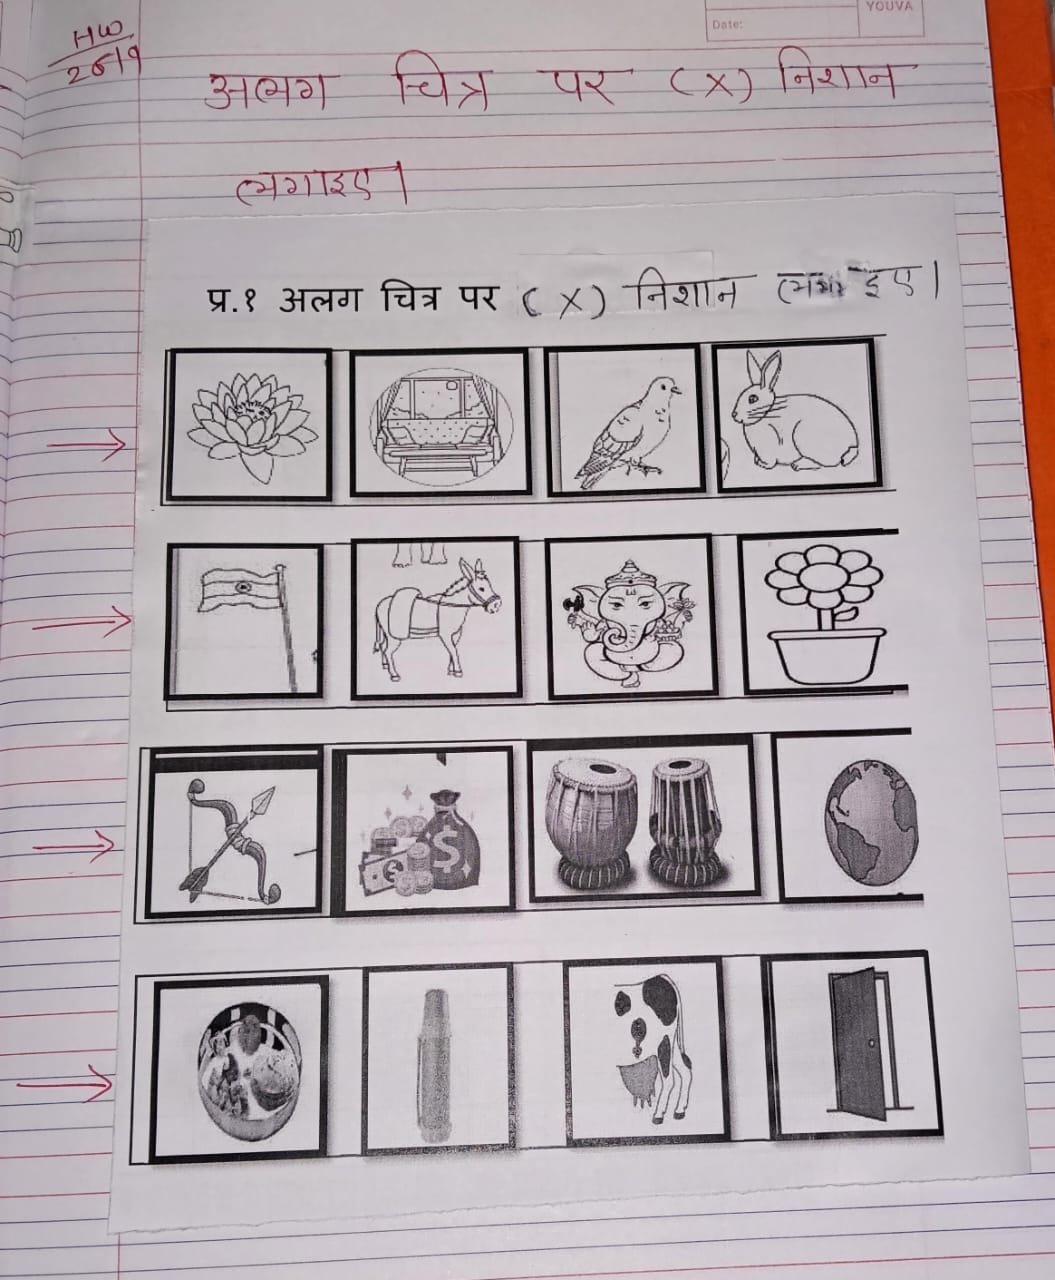 YOUVA
Date:
HW
26/9
अलग चित्र पर (X) निशान
लगाइए।
प्र.१ अलग चित्र पर (X) निशान लगाइए।
$